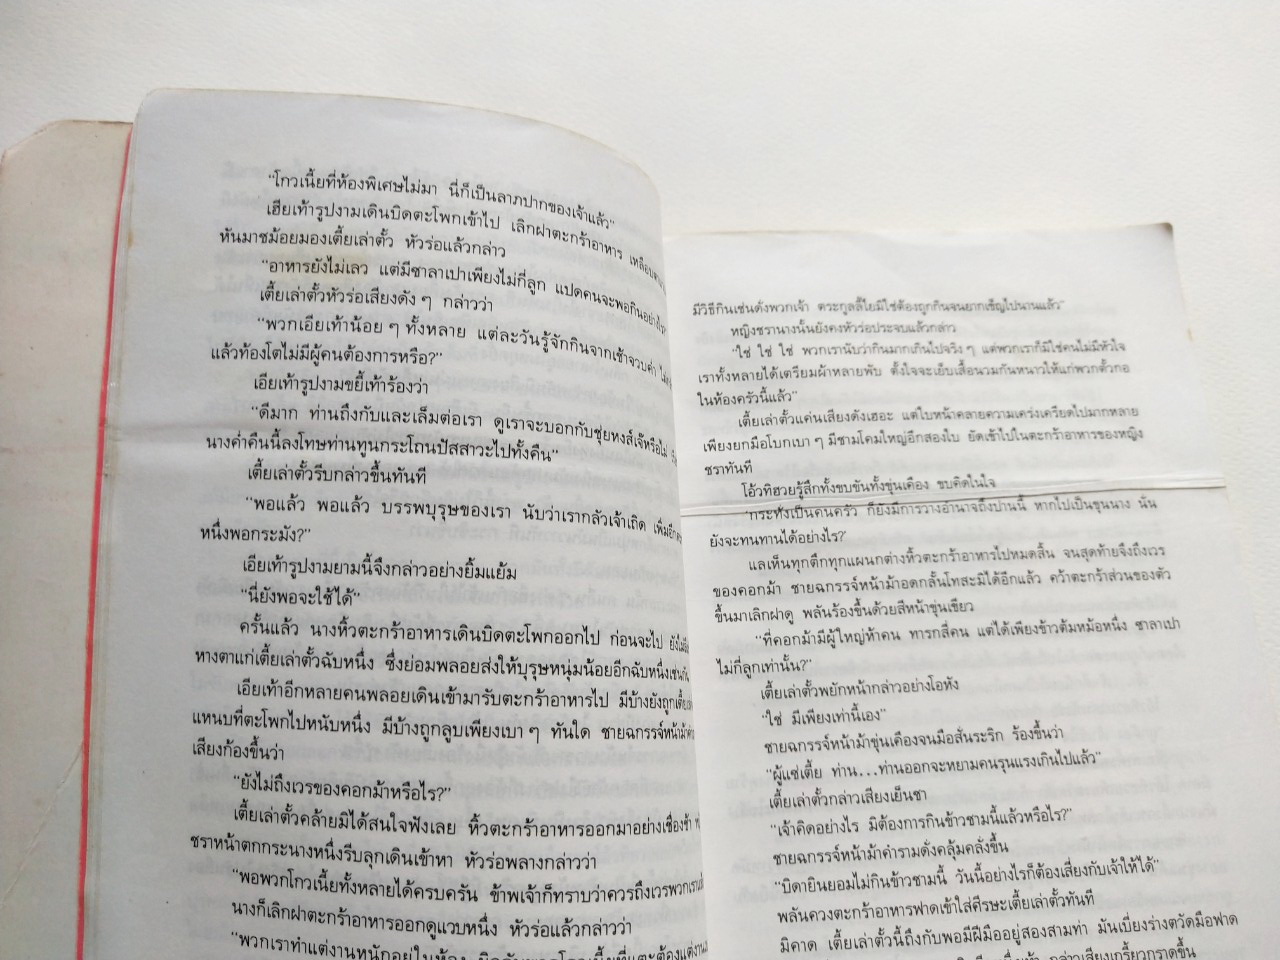 “โกวเนี้ยที่ห้องพิเศษไม่มา นี่ก็เป็นลาภปากของเจ้าแล้ว”
เฮียเท้ารูปงามเดินบิดตะโพกเข้าไป เลิกฝาตะกร้าอาหาร เหลือบ
หันมาชม้อยมองเตี้ยเล่าตั้ว หัวร่อแล้วกล่าว
“อาหารยังไม่เลว แต่มีซาลาเปาเพียงไม่กี่ลูก แปดคนจะพอกินอย่างไร
เตี้ยเล่าตั้วหัวร่อเสียงดังๆ กล่าวว่า
“พวกเอียเท้าน้อยๆ ทั้งหลาย แต่ละวันรู้จักกินจากเช้าจวบค่ำ
แล้วท้องโตไม่มีผู้คนต้องการหรือ?”
เอียเท้ารูปงามขยี้เท้าร้องว่า
“ดีมาก ท่านถึงกับและเล็มต่อเรา ดูเราจะบอกกับซุ่ยหงส์เจ้หรือไม่
นางค่ำคืนนี้ลงโทษท่านทูนกระโถนปัสสาวะไปทั้งคืน”
เตี้ยเล่าตั้วรีบกล่าวขึ้นทันที
“พอแล้ว พอแล้ว บรรพบุรุษของเรา นับว่าเรากลัวเจ้าเถิด เพิ่มอีก
หนึ่งพอกระมัง?”
เอียเท้ารูปงามยามนี้จึงกล่าวอย่างยิ้มแย้ม
“นี่ยังพอจะใช้ได้”
ครั้นแล้ว นางหิ้วตะกร้าอาหารเดินบิดตะโพกออกไป ก่อนจะไป
หางตาแก่เตี้ยเล่าตั้วฉับหนึ่ง ซึ่งย่อมพลอยส่งให้บุรุษหนุ่มน้อยอีกฉับหนึ่งเช่นกัน
เอียเท้าอีกหลายคนพลอยเดินเข้ามารับตะกร้าอาหารไป มีบ้างยังถูกเตี้ย
แหนบที่ตะโพกไปหนับหนึ่ง มีบ้างถูกลูบเพียงเบาๆ ทันใด ชายฉกรรจ์หน้าม้า
เสียงก้องขึ้นว่า
“ยังไม่ถึงเวรของคอกม้าหรือไร?”
เตี้ยเล่าตั้วคล้ายมิได้สนใจฟังเลย หิ้วตะกร้าอาหารออกมาอย่างเชื่องช้า
ชราหน้าตกกระนางหนึ่งรีบลุกเดินเข้าหา หัวร่อพลางกล่าวว่า
“พอพวกโกวเนี้ยทั้งหลายได้ครบครัน ข้าพเจ้าก็ทราบว่าควรถึงเวรพวกเรา
นางก็เลิกฝาตะกร้าอาหารออกดูแวบหนึ่ง หัวร่อแล้วกล่าวว่า
“พวกเราทำแต่งานหนักอยู่ในห้อง
มีวิธีกินเช่นดั่งพวกเจ้า ตระกูลลี้ไยมิใช่ต้องถูกกินจนยากเข็ญไปนานแล้ว”
หญิงชรานางนั้นยังคงหัวร่อประจบแล้วกล่าว
“ใช่ ใช่ ใช่ พวกเรานับว่ากินมากเกินไปจริงๆ แต่พวกเราก็มิใช่คนไม่มีหัวใจ
เราทั้งหลายได้เตรียมผ้าหลายพับ ตั้งใจจะเย็บเสื้อนวมกันหนาวให้แก่พวกตั้วกอ
ในห้องครัวนี้แล้ว”
เตี้ยเล่าตั้วแค่นเสียงดังเฮอะ แต่ใบหน้าคลายความเคร่งเครียดไปมากหลาย
เพียงยกมือโบกเบาๆ มีชามโคมใหญ่อีกสองใบ ยัดเข้าไปในตะกร้าอาหารของหญิง
ชราทันที
โอ้วทิฮวยรู้สึกทั้งขบขันทั้งขุ่นเคือง ขบคิดในใจ
“กระทั่งเป็นคนครัว ก็ยังมีการวางอำนาจถึงปานนี้ หากไปเป็นขุนนาง นั่น
ยังจะทนทานได้อย่างไร?”
แลเห็นทุกตึกทุกแผนกต่างหิ้วตะกร้าอาหารไปหมดสิ้น จนสุดท้ายจึงถึงเวร
ของคอกม้า ชายฉกรรจ์หน้าม้าอดกลั้นโทสะมิได้อีกแล้ว คว้าตะกร้าส่วนของตัว
ขึ้นมาเลิกฝาดู พลันร้องขึ้นด้วยสีหน้าขุ่นเขียว
“ที่คอกม้ามีผู้ใหญ่ห้าคน ทารกสี่คน แต่ได้เพียงข้าวต้มหม้อหนึ่ง ซาลาเปา
ไม่กี่ลูกเท่านั้น?”
เตี้ยเล่าตั้วพยักหน้ากล่าวอย่างโอหัง
“ใช่ มีเพียงเท่านี้เอง”
ชายฉกรรจ์หน้าม้าขุ่นเคืองจนมือสั่นระริก ร้องขึ้นว่า
“ผู้แซ่เตี้ย ท่าน...ท่านออกจะหยามคนรุนแรงเกินไปแล้ว”
เตี้ยเล่าตั้วกล่าวเสียงเย็นชา
“เจ้าคิดอย่างไร มิต้องการกินข้าวชามนี้แล้วหรือไร?”
ชายฉกรรจ์หน้าม้าคำรามดั่งคลุ้มคลั่งขึ้น
“บิดายินยอมไม่กินข้าวชามนี้ วันนี้อย่างไรก็ต้องเสี่ยงกับเจ้าให้ได้”
พลันควงตะกร้าอาหารฟาดเข้าใส่ศีรษะเตี้ยเล่าตั้วทันที
มิคาด เตี้ยเล่าตั้วนี้ถึงกับพอมีฝีมืออยู่สองสามท่า มันเบี่ยงร่างตวัดมือฟาด
กล่าวเสียงเกรี้ยวกราดขึ้น